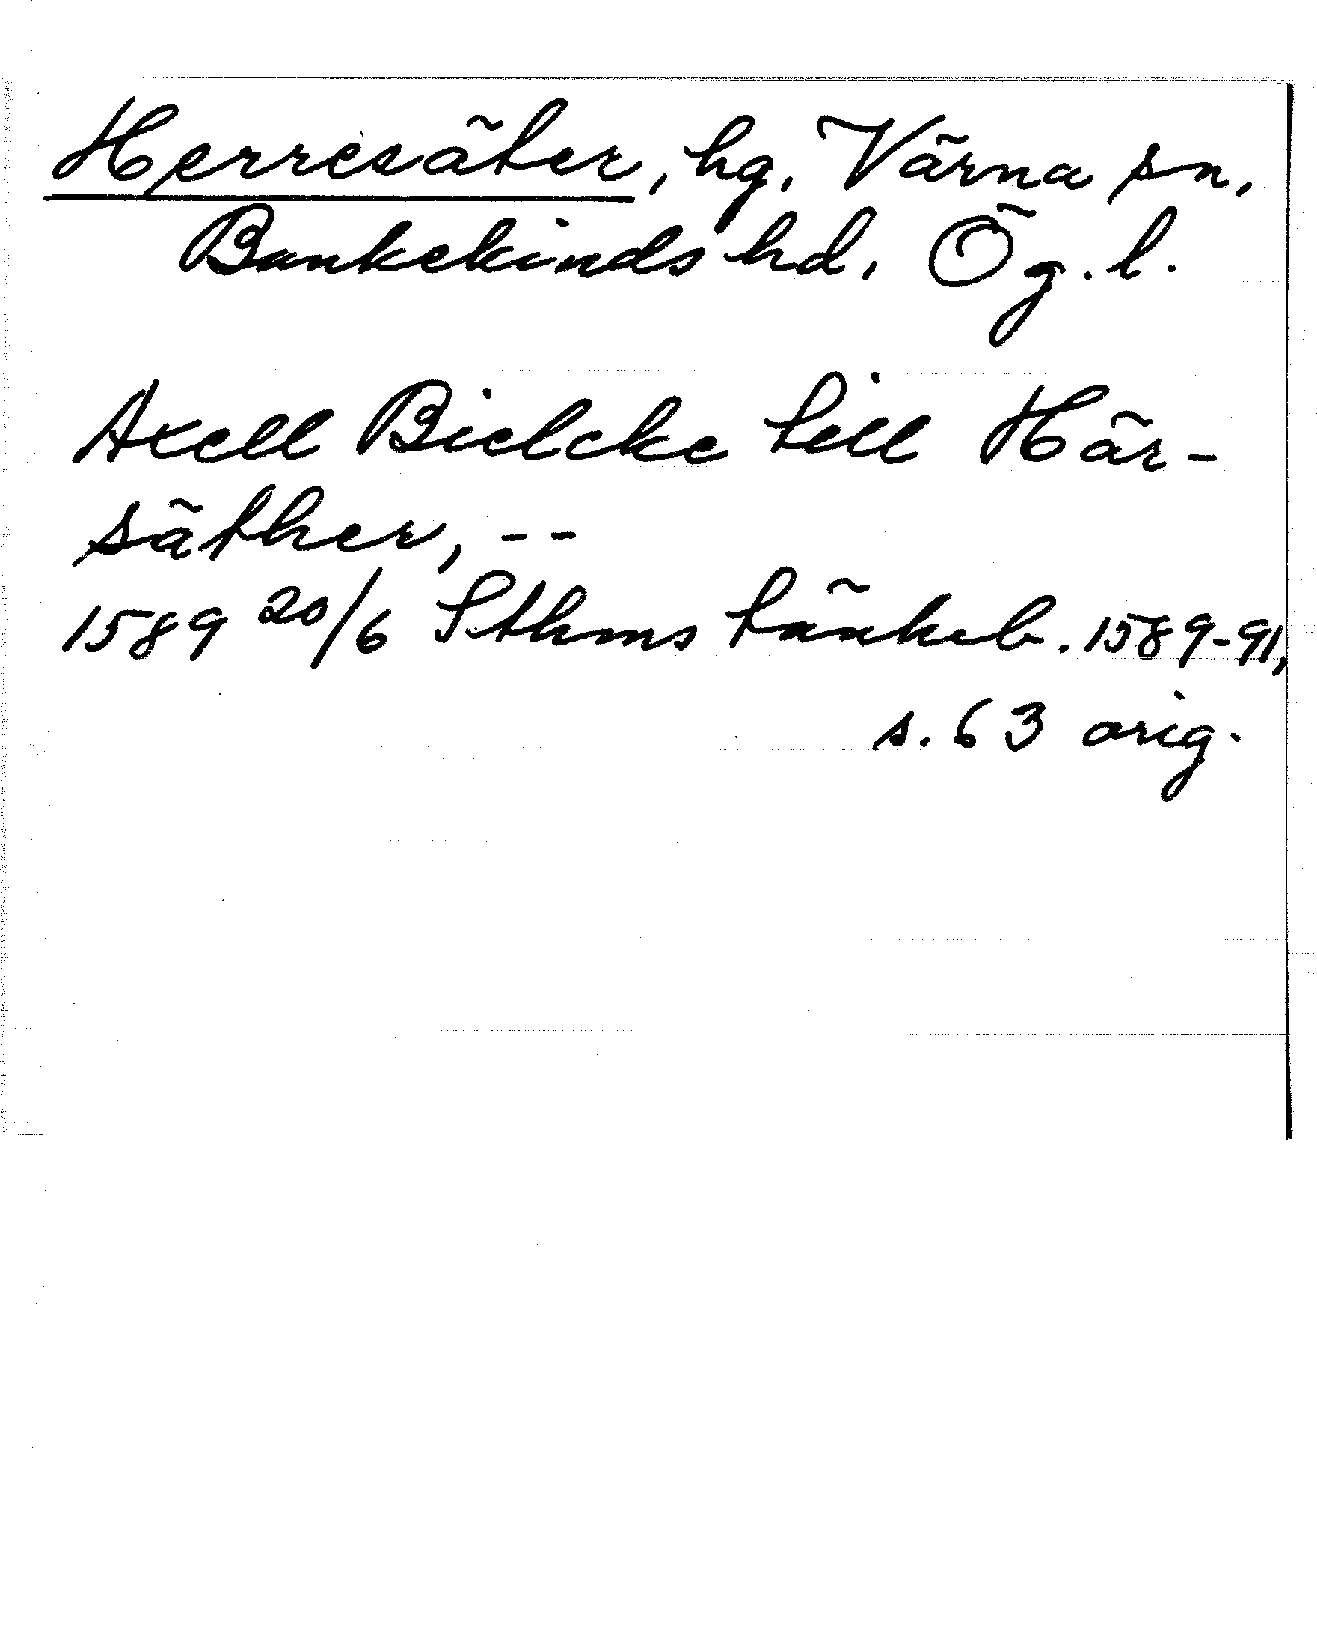 Herresäter, hg, Värna sn,
Bankekinds hd, Ög. l.
Axell Bielcke till Här-
säther, --
1589 20/6 Sthms tänkeb. 1589-91,
s. 63 orig.